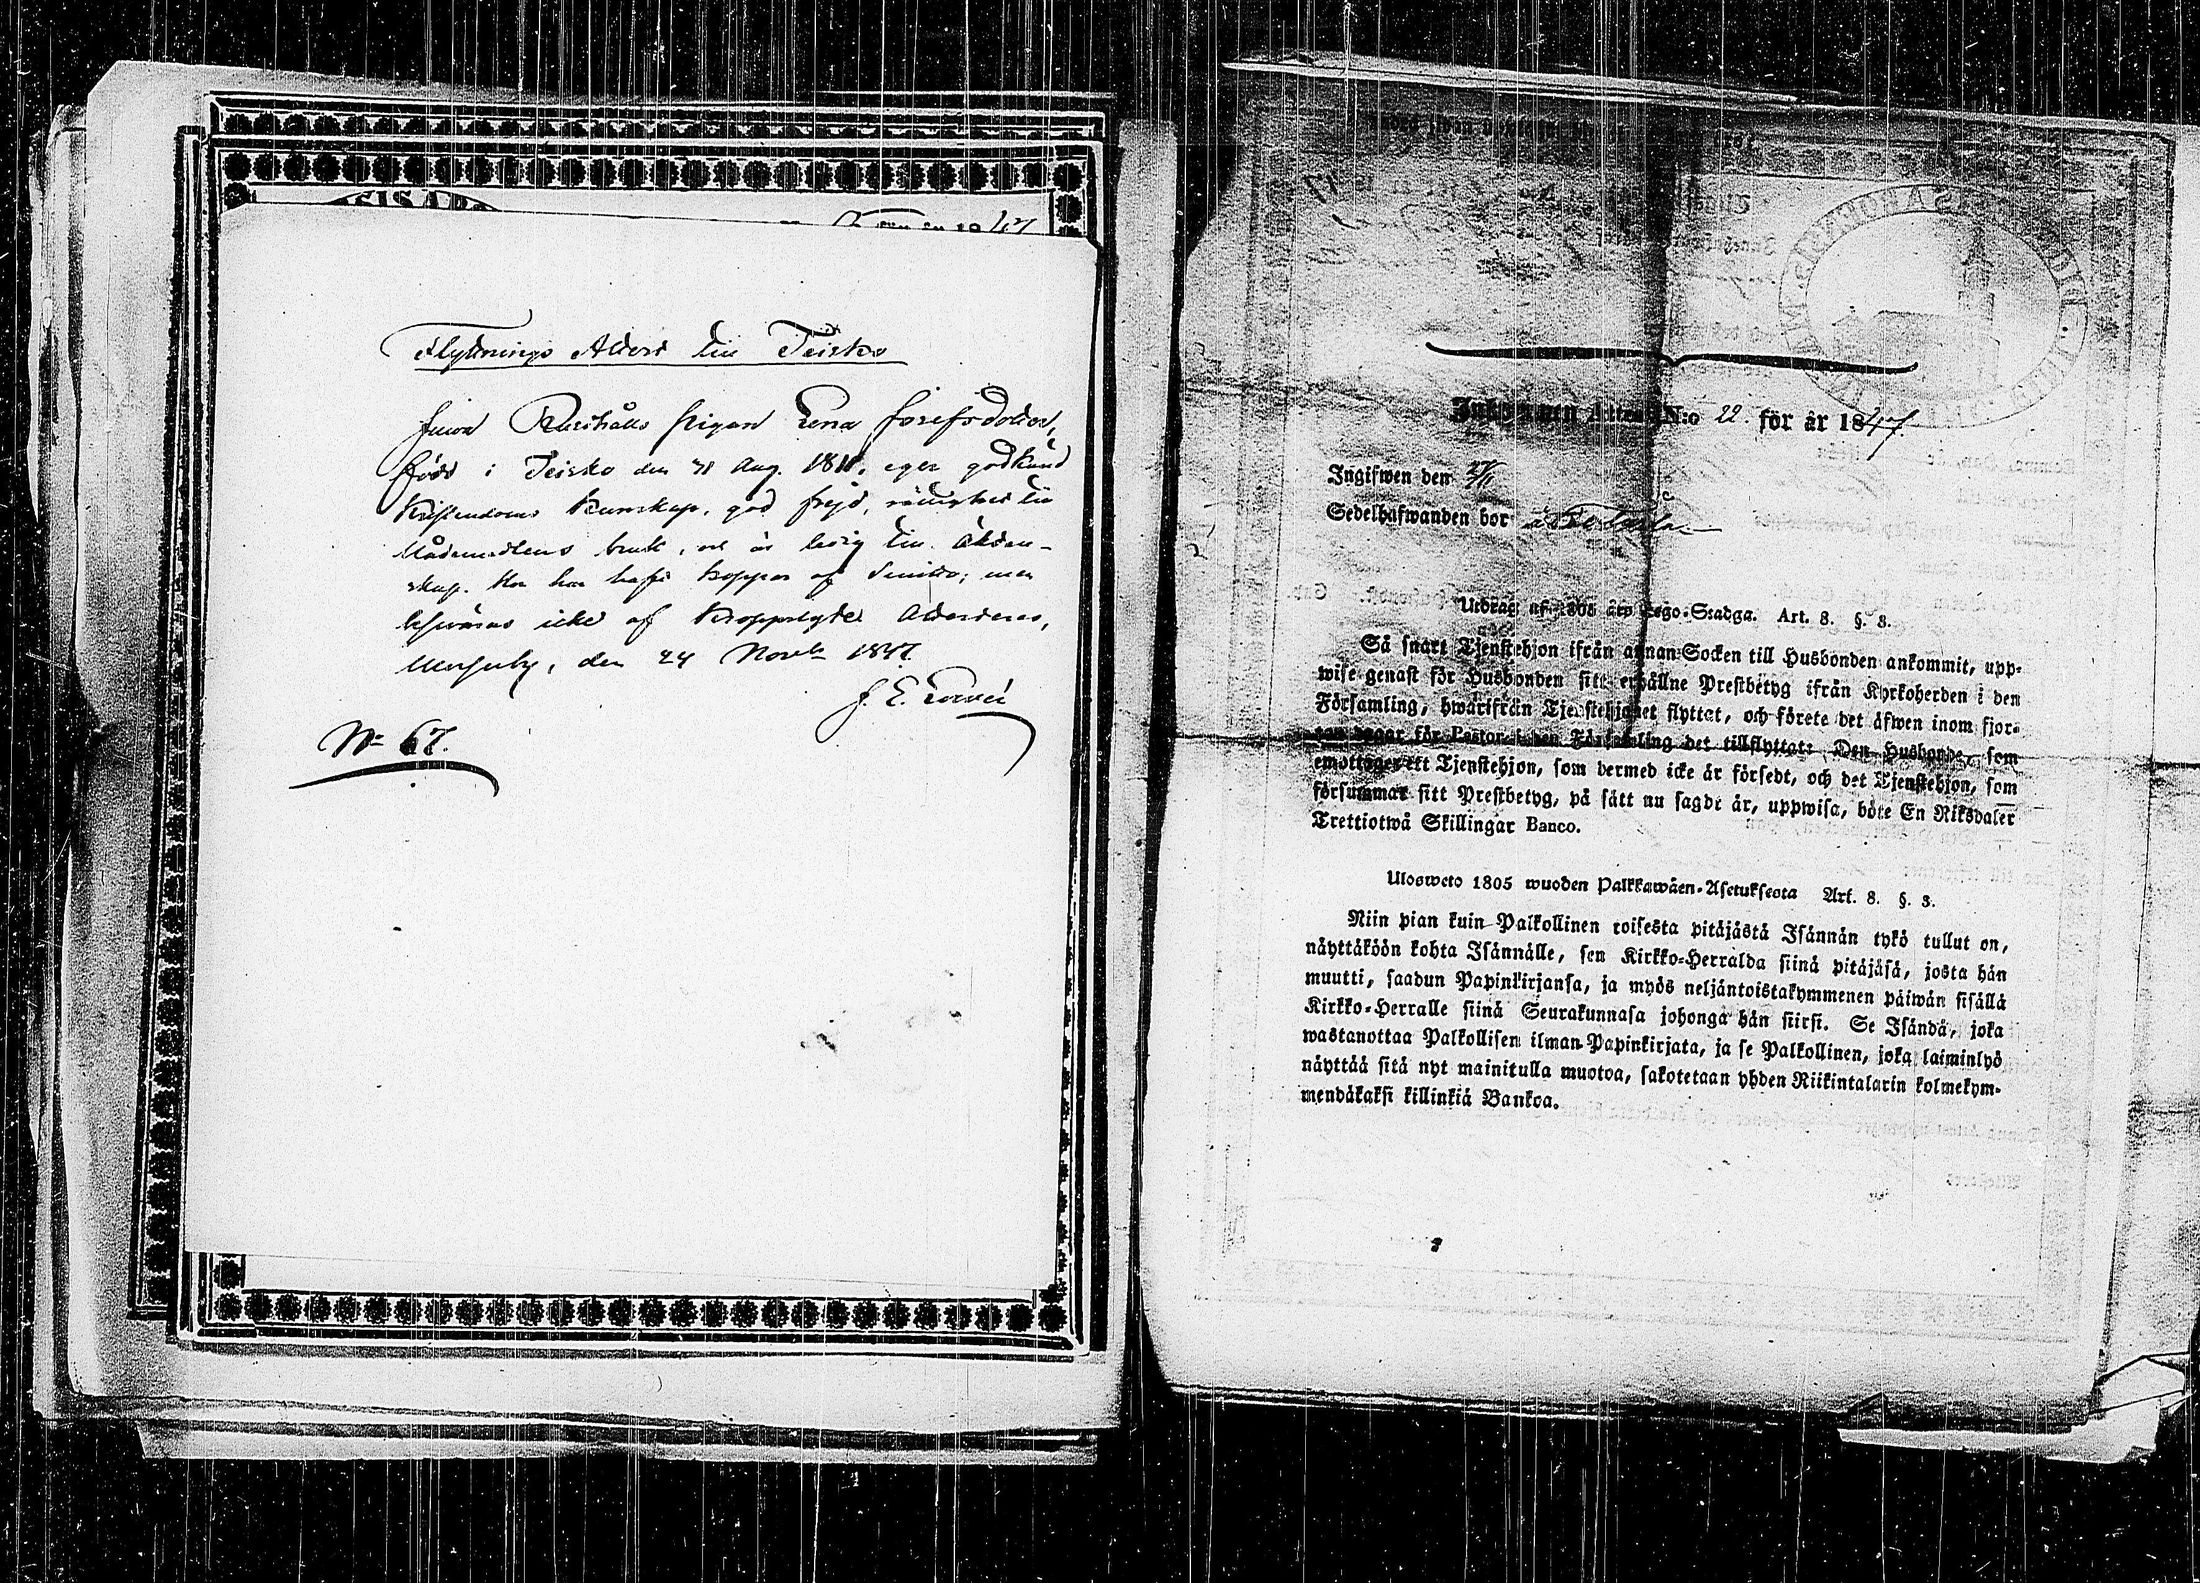 för år 1847
Flyttnings Attest till Teisko
pigan Lena Josefsdotter,
född i Teisko den 31 Aug. 1811, eger godkänd
Kristendoms kunskap, god frejd, rättighet till
Nådemedlens bruk, och är ledig till Äkten-
skap. Hon har haft koppor af Smitto; men
besväras icke af kroppslyte. Attesteras,
den 24 Novb. 1847.
J. E.
No 67.
Inkommen Attest N:o 22. för år 1847.
Ingifwen den 27/11
Sedelhafwanden bor å
Utdrag af 1805 års Lego-Stadga. Art. 8. §. 8.
Så snart Tjenstehjon ifrån annan Socken till Husbonden ankommit, upp-
wise genast för Husbonden sitt erhållne Prestbetyg ifrån Kyrkoherden i den
Församling, hwarifrån Tjenstehjonet flyttat, och förete det äfwen inom fjor-
ton dagar för Pastor i den Församling det tillflyttat. Den Husbonde, som
emottager ett Tjenstehjon, som dermed icke är försedt, och det Tjenstehjon, som
försummar sitt Prestbetyg, på sätt nu sagdt är, uppwisa, böte En Riksdaler
Trettiotwå Skillingar Banco.
Ulosweto 1805 wuoden Palkkawäen-Asetuksesta Art. 8. §. 3.
Niin pian kuin Palkollinen toisesta pitäjästä Isännän tykö tullut on,
näyttäköön kohta Isännälle, sen Kirkko-Herralda siinä pitäjäsä, josta hän
muutti, saadun Papinkirjansa, ja myös neljäntoistakymmenen päiwän sisällä
Kirkko-Herralle siinä Seurakunnasa johonga hän siirsi. Se Isändä, joka
wastanottaa Palkollisen ilman Papinkirjata, ja se Palkollinen, joka laiminlyö
näyttää sitä nyt mainitulla muotoa, sakotetaan yhden Riikintalarin kolmekym-
mendäkaksi killinkiä Bankoa.